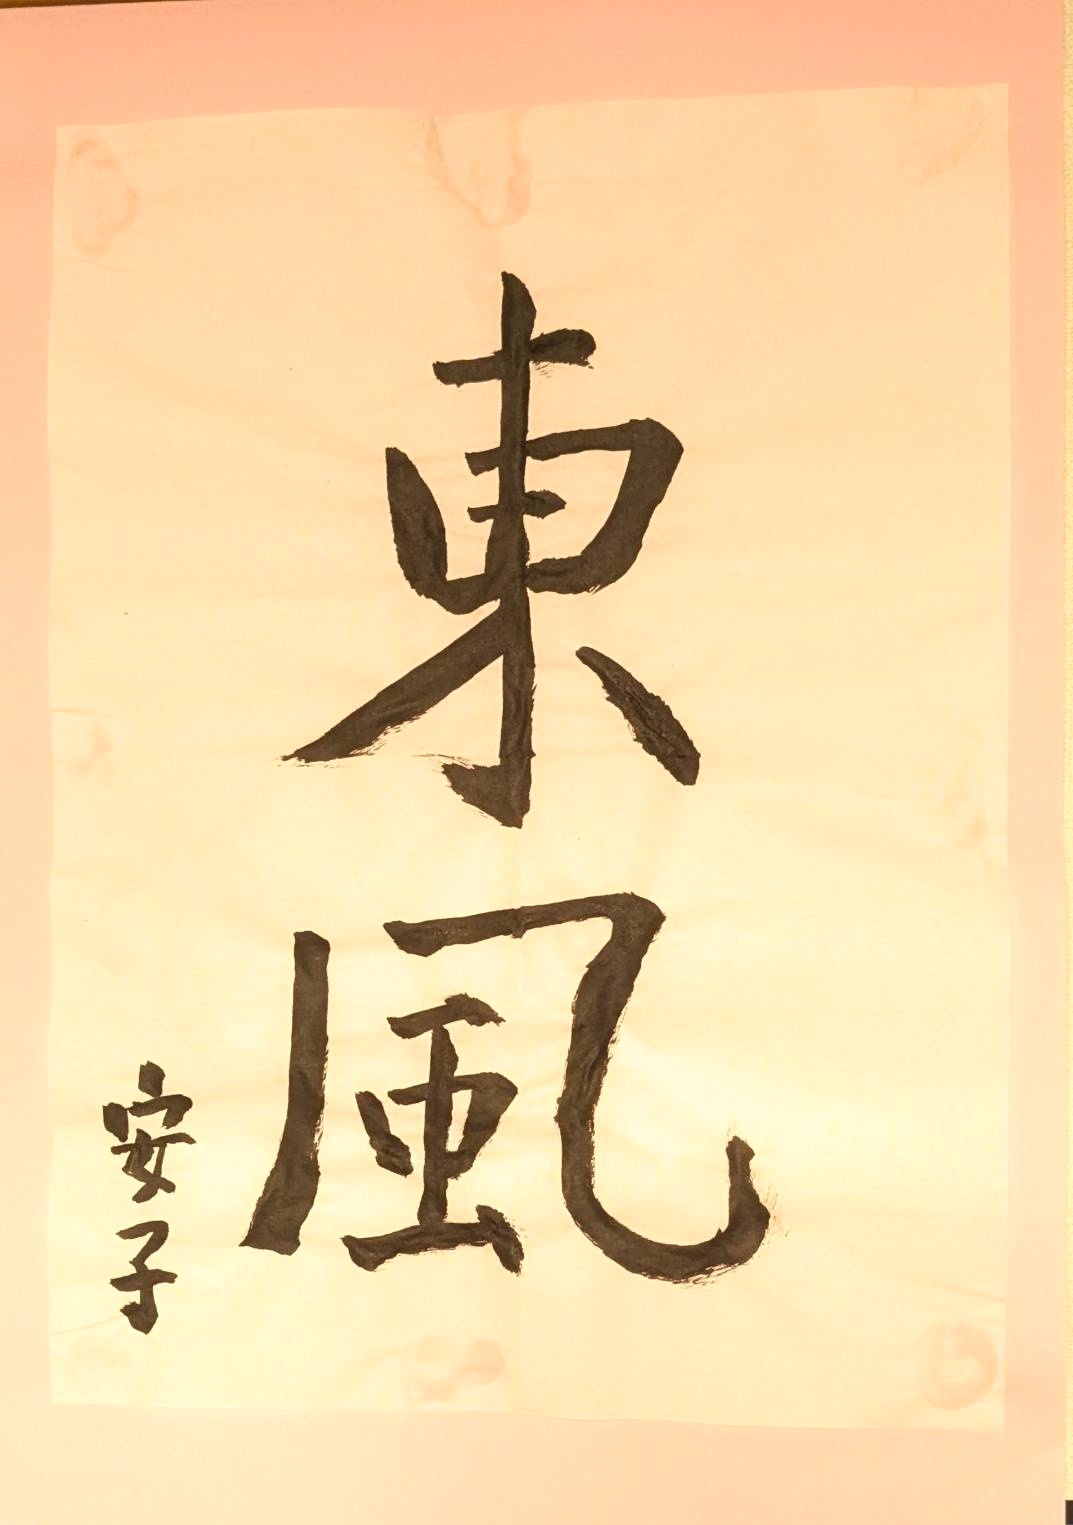 東風
安子